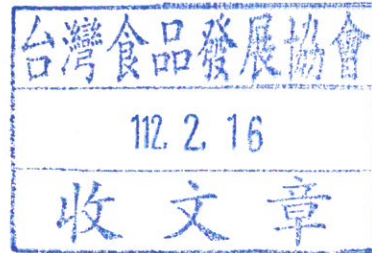 台灣食品發展協會
112. 2. 16
收文章